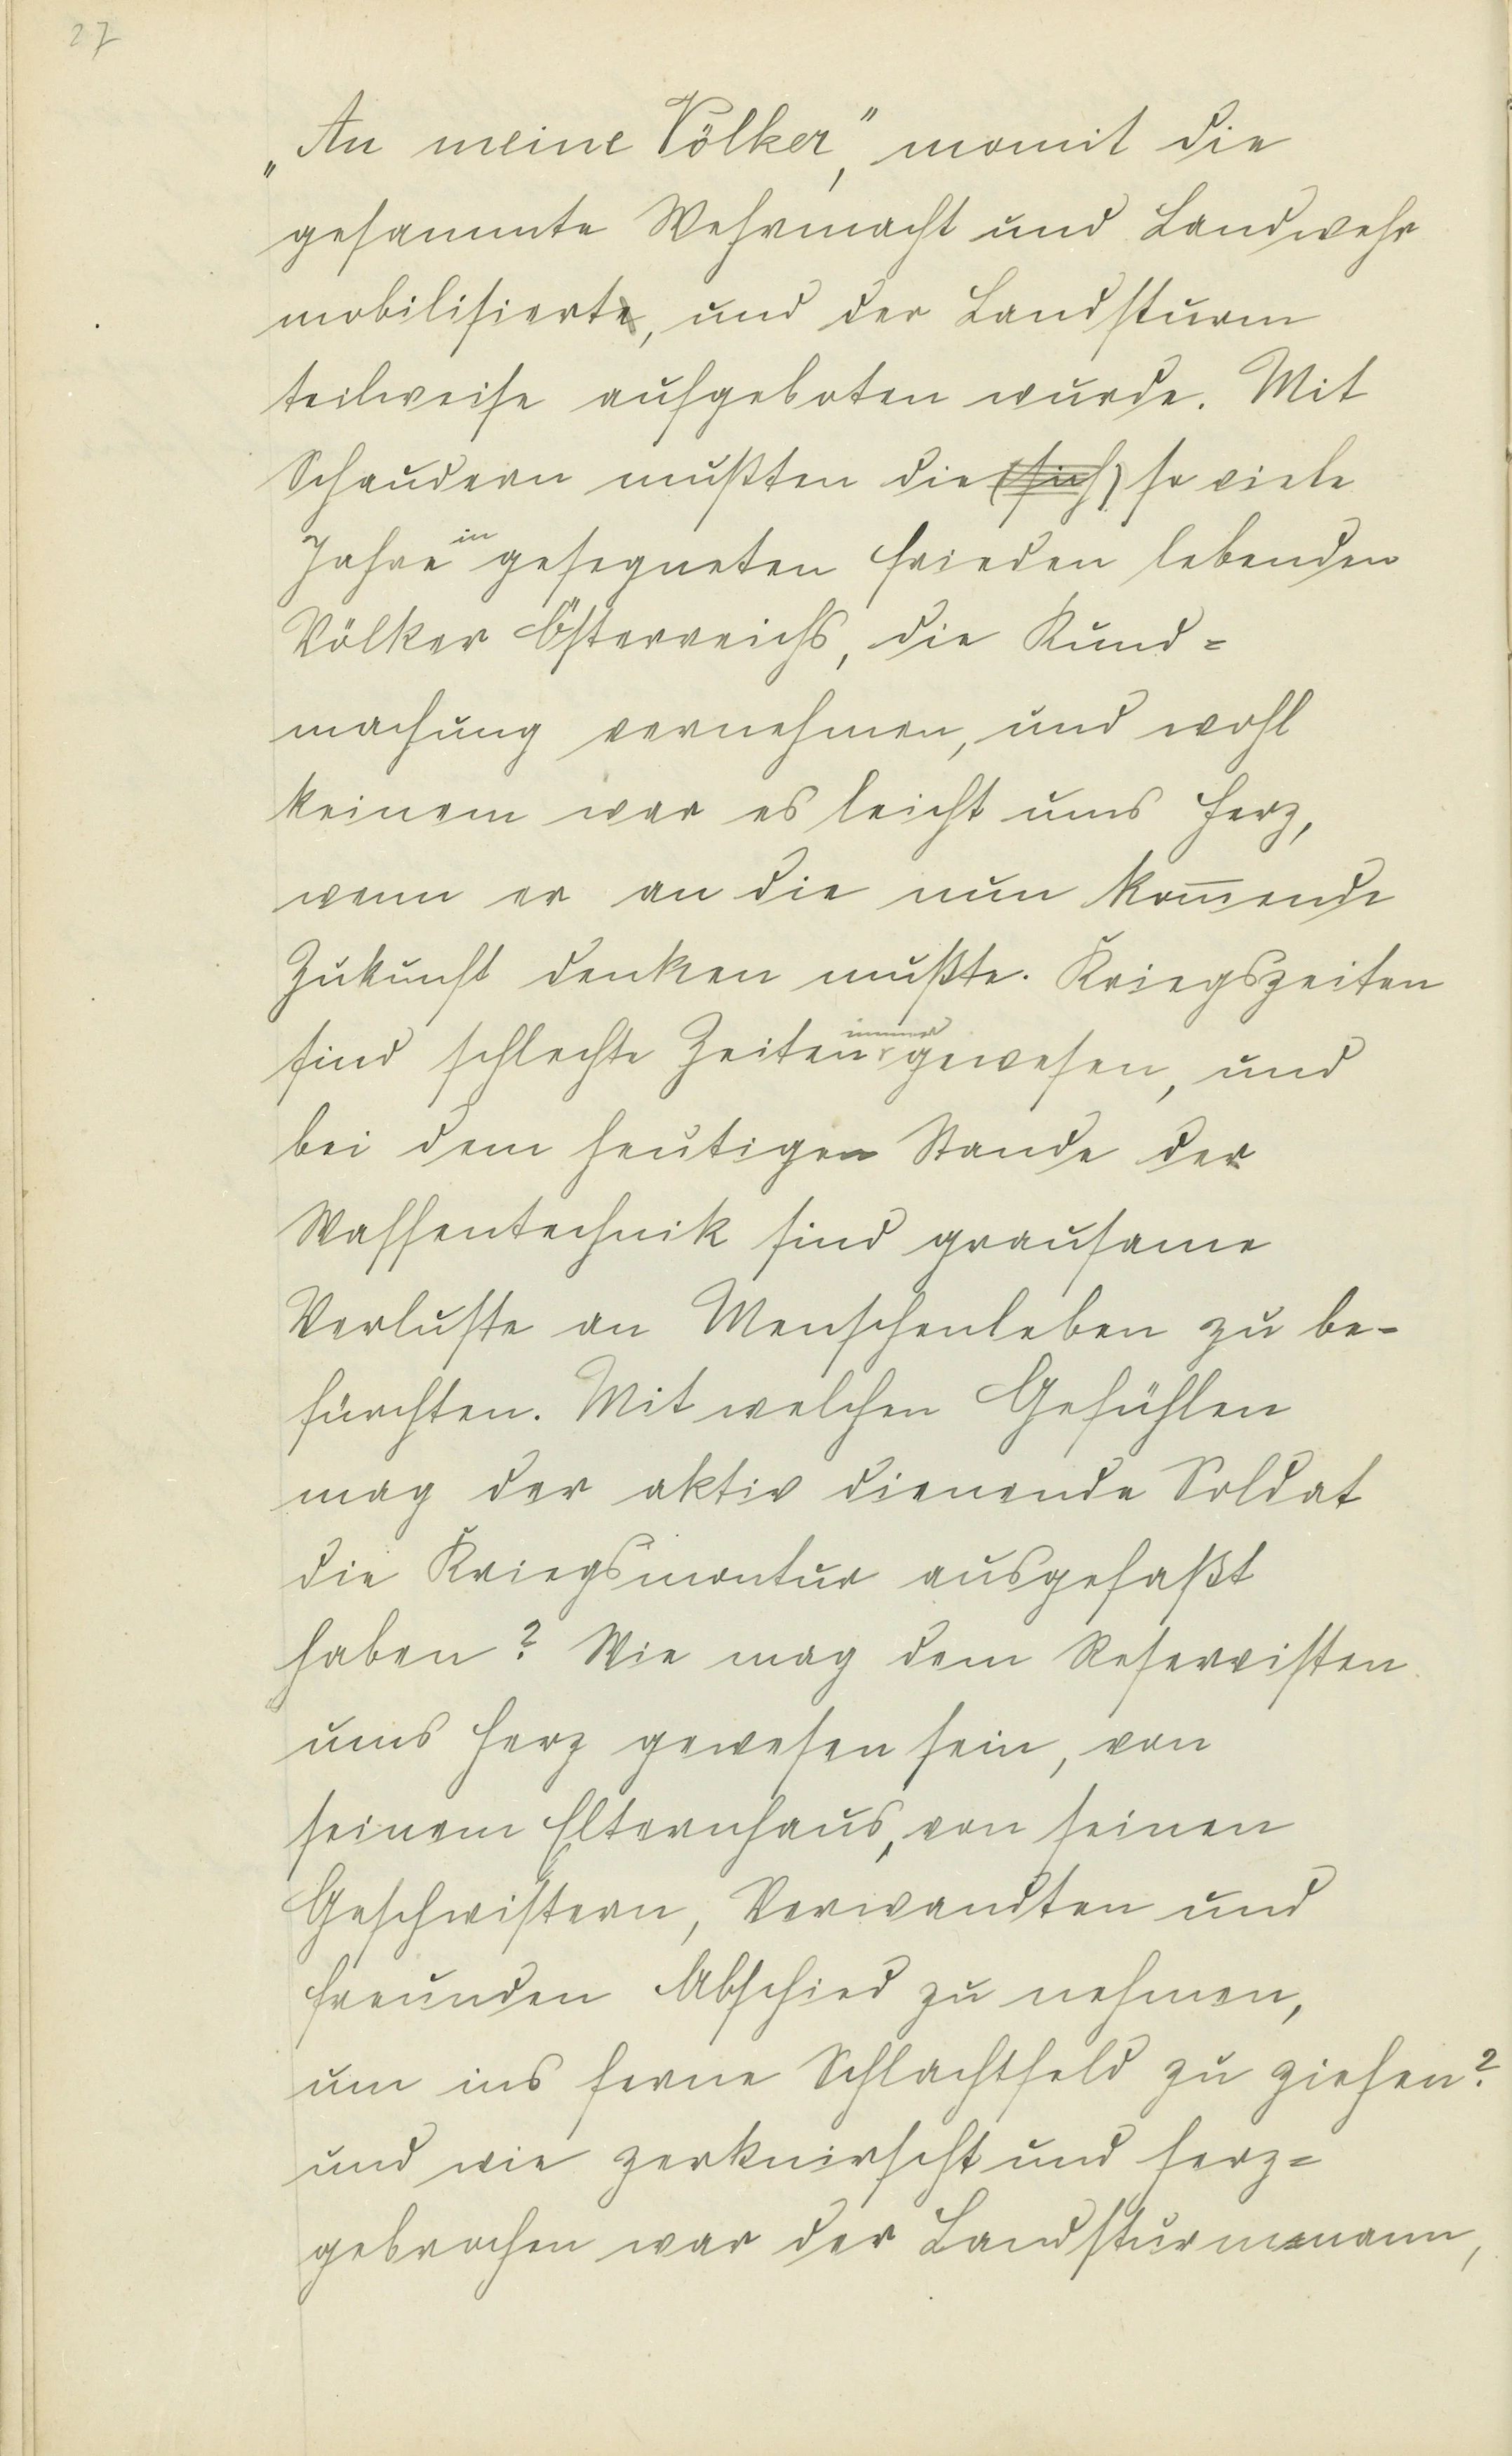 27
„An meine Völker," womit die
gesammte Wehrmacht und Landwehr
mobilisiert, und der Landsturm
teilweise aufgeboten wurde. Mit
Schaudern mußten die (sich) so viele
Jahre in gesegneten Frieden lebenden
Völker Österreichs, die Kund=
machung vernehmen, und wohl
keinem war es leicht ums Herz,
wenn er an die nun kom̅ende
Zukunft denken mußte. Kriegszeiten
sind schlechte Zeiten immer gewesen, und
bei dem heutigen Stande der
Waffentechnik sind grausame
Verluste an Menschenleben zu be-
fürchten. Mit welchen Gefühlen
mag der aktiv dienende Soldat
die Kriegsmontur ausgefaßt
haben? Wie mag dem Reservisten
ums Herz gewesen sein, von
seinem Elternhaus, von seinen
Geschwistern, Verwandten und
Freunden Abschied zu nehmen,
um ins ferne Schlachtfeld zu ziehen?
und wie zerknirscht und herz=
gebrochen war der Landsturmmann,